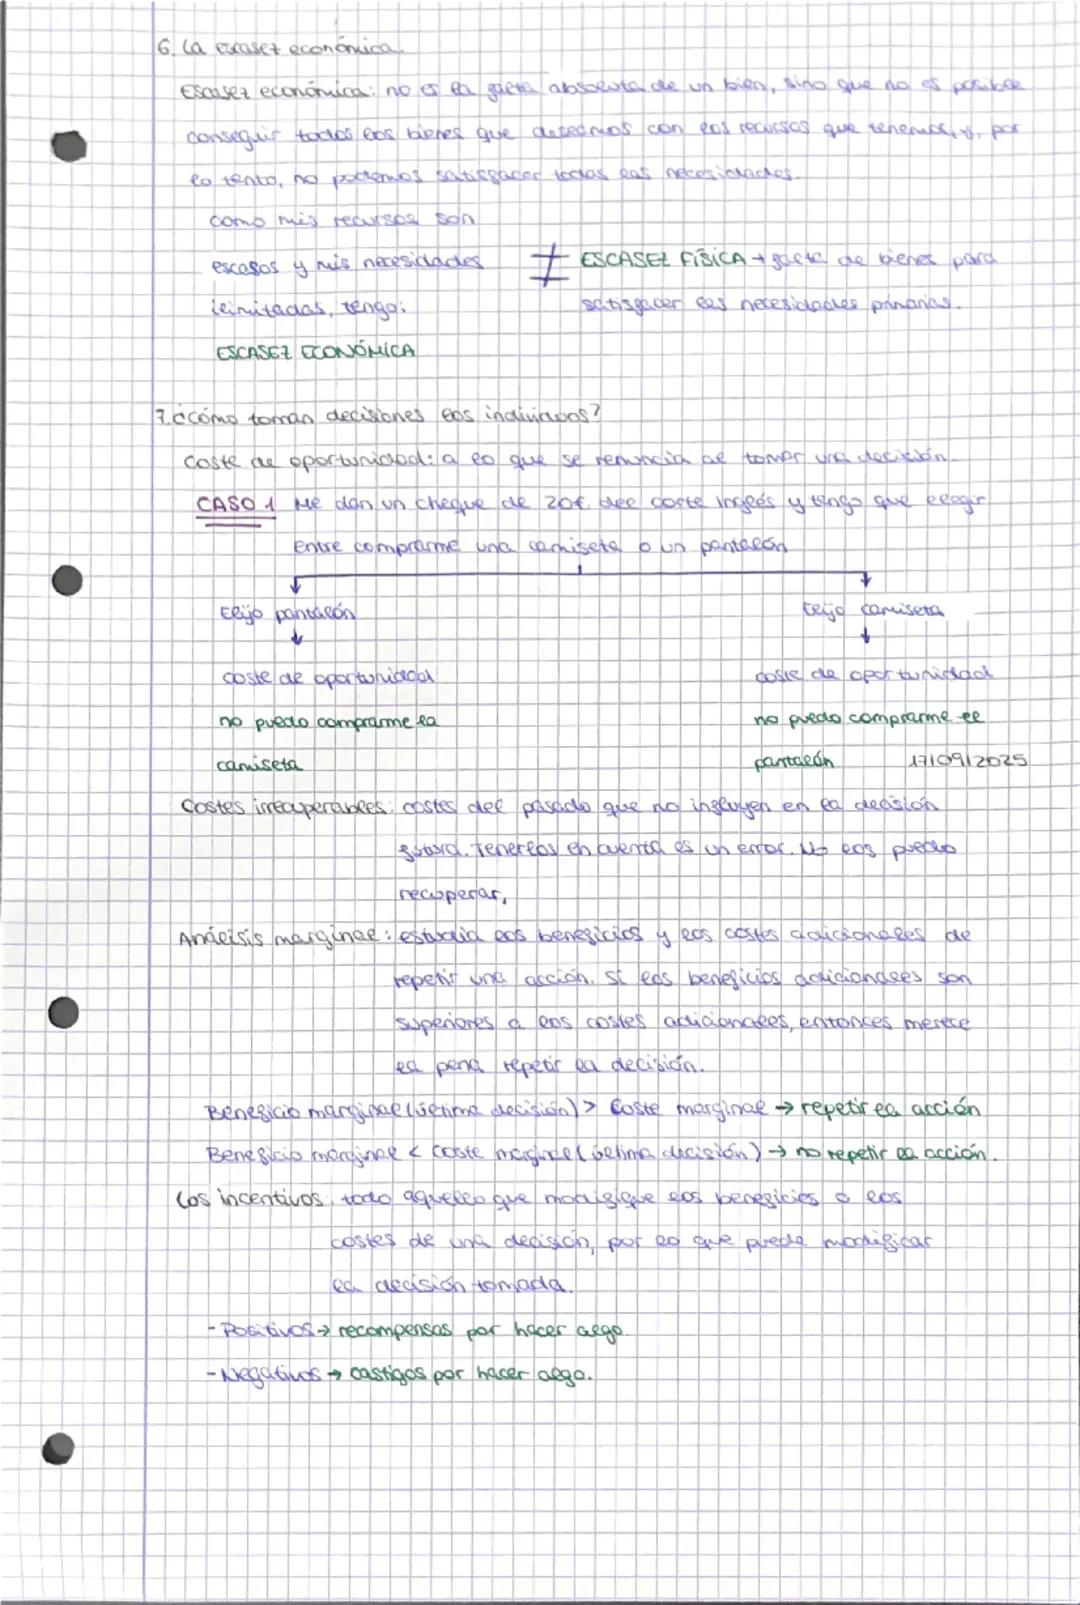 6. La escasez económica.
Escasez económica: no es la falta absoluta de un bien, sino que no es posible
conseguir todos los bienes que deseamos con los recursos que tenemos, y, por
lo tanto, no podemos satisfacer todas las necesidades.
como mis recursos son
escasos y mis necesidades
ilimitadas, tengo:
ESCASEZ ECONÓMICA
≠ ESCASEZ FÍSICA → falta de bienes para
satisfacer las necesidades primarias.
7. ¿cómo toman decisiones los individuos?
Coste de oportunidad: a lo que se renuncia al tomar una decisión.
CASO 1 Me dan un cheque de 20€ del corte inglés y tengo que elegir
entre comprarme una camiseta o un pantalón
Elijo pantalón
↓
coste de oportunidad
no puedo comprarme la
camiseta
Elijo camiseta
↓
coste de oportunidad
no puedo comprarme el
pantalón
17/09/2025
Costes irrecuperables: costes del pasado que no influyen en la decisión
futura. Tenerlos en cuenta es un error. No los puedo
recuperar.
Análisis marginal: estudia los beneficios y los costes adicionales de
repetir una acción. Si los beneficios adicionales son
superiores a los costes adicionales, entonces merece
la pena repetir la decisión.
Beneficio marginal (última decisión) > Coste marginal → repetir la acción
Beneficio marginal < coste marginal (última decisión) → no repetir la acción.
Los incentivos: todo aquello que modifique los beneficios o los
costes de una decisión, por lo que puede modificar
la decisión tomada.
- Positivos → recompensas por hacer algo.
- Negativos → castigos por hacer algo.